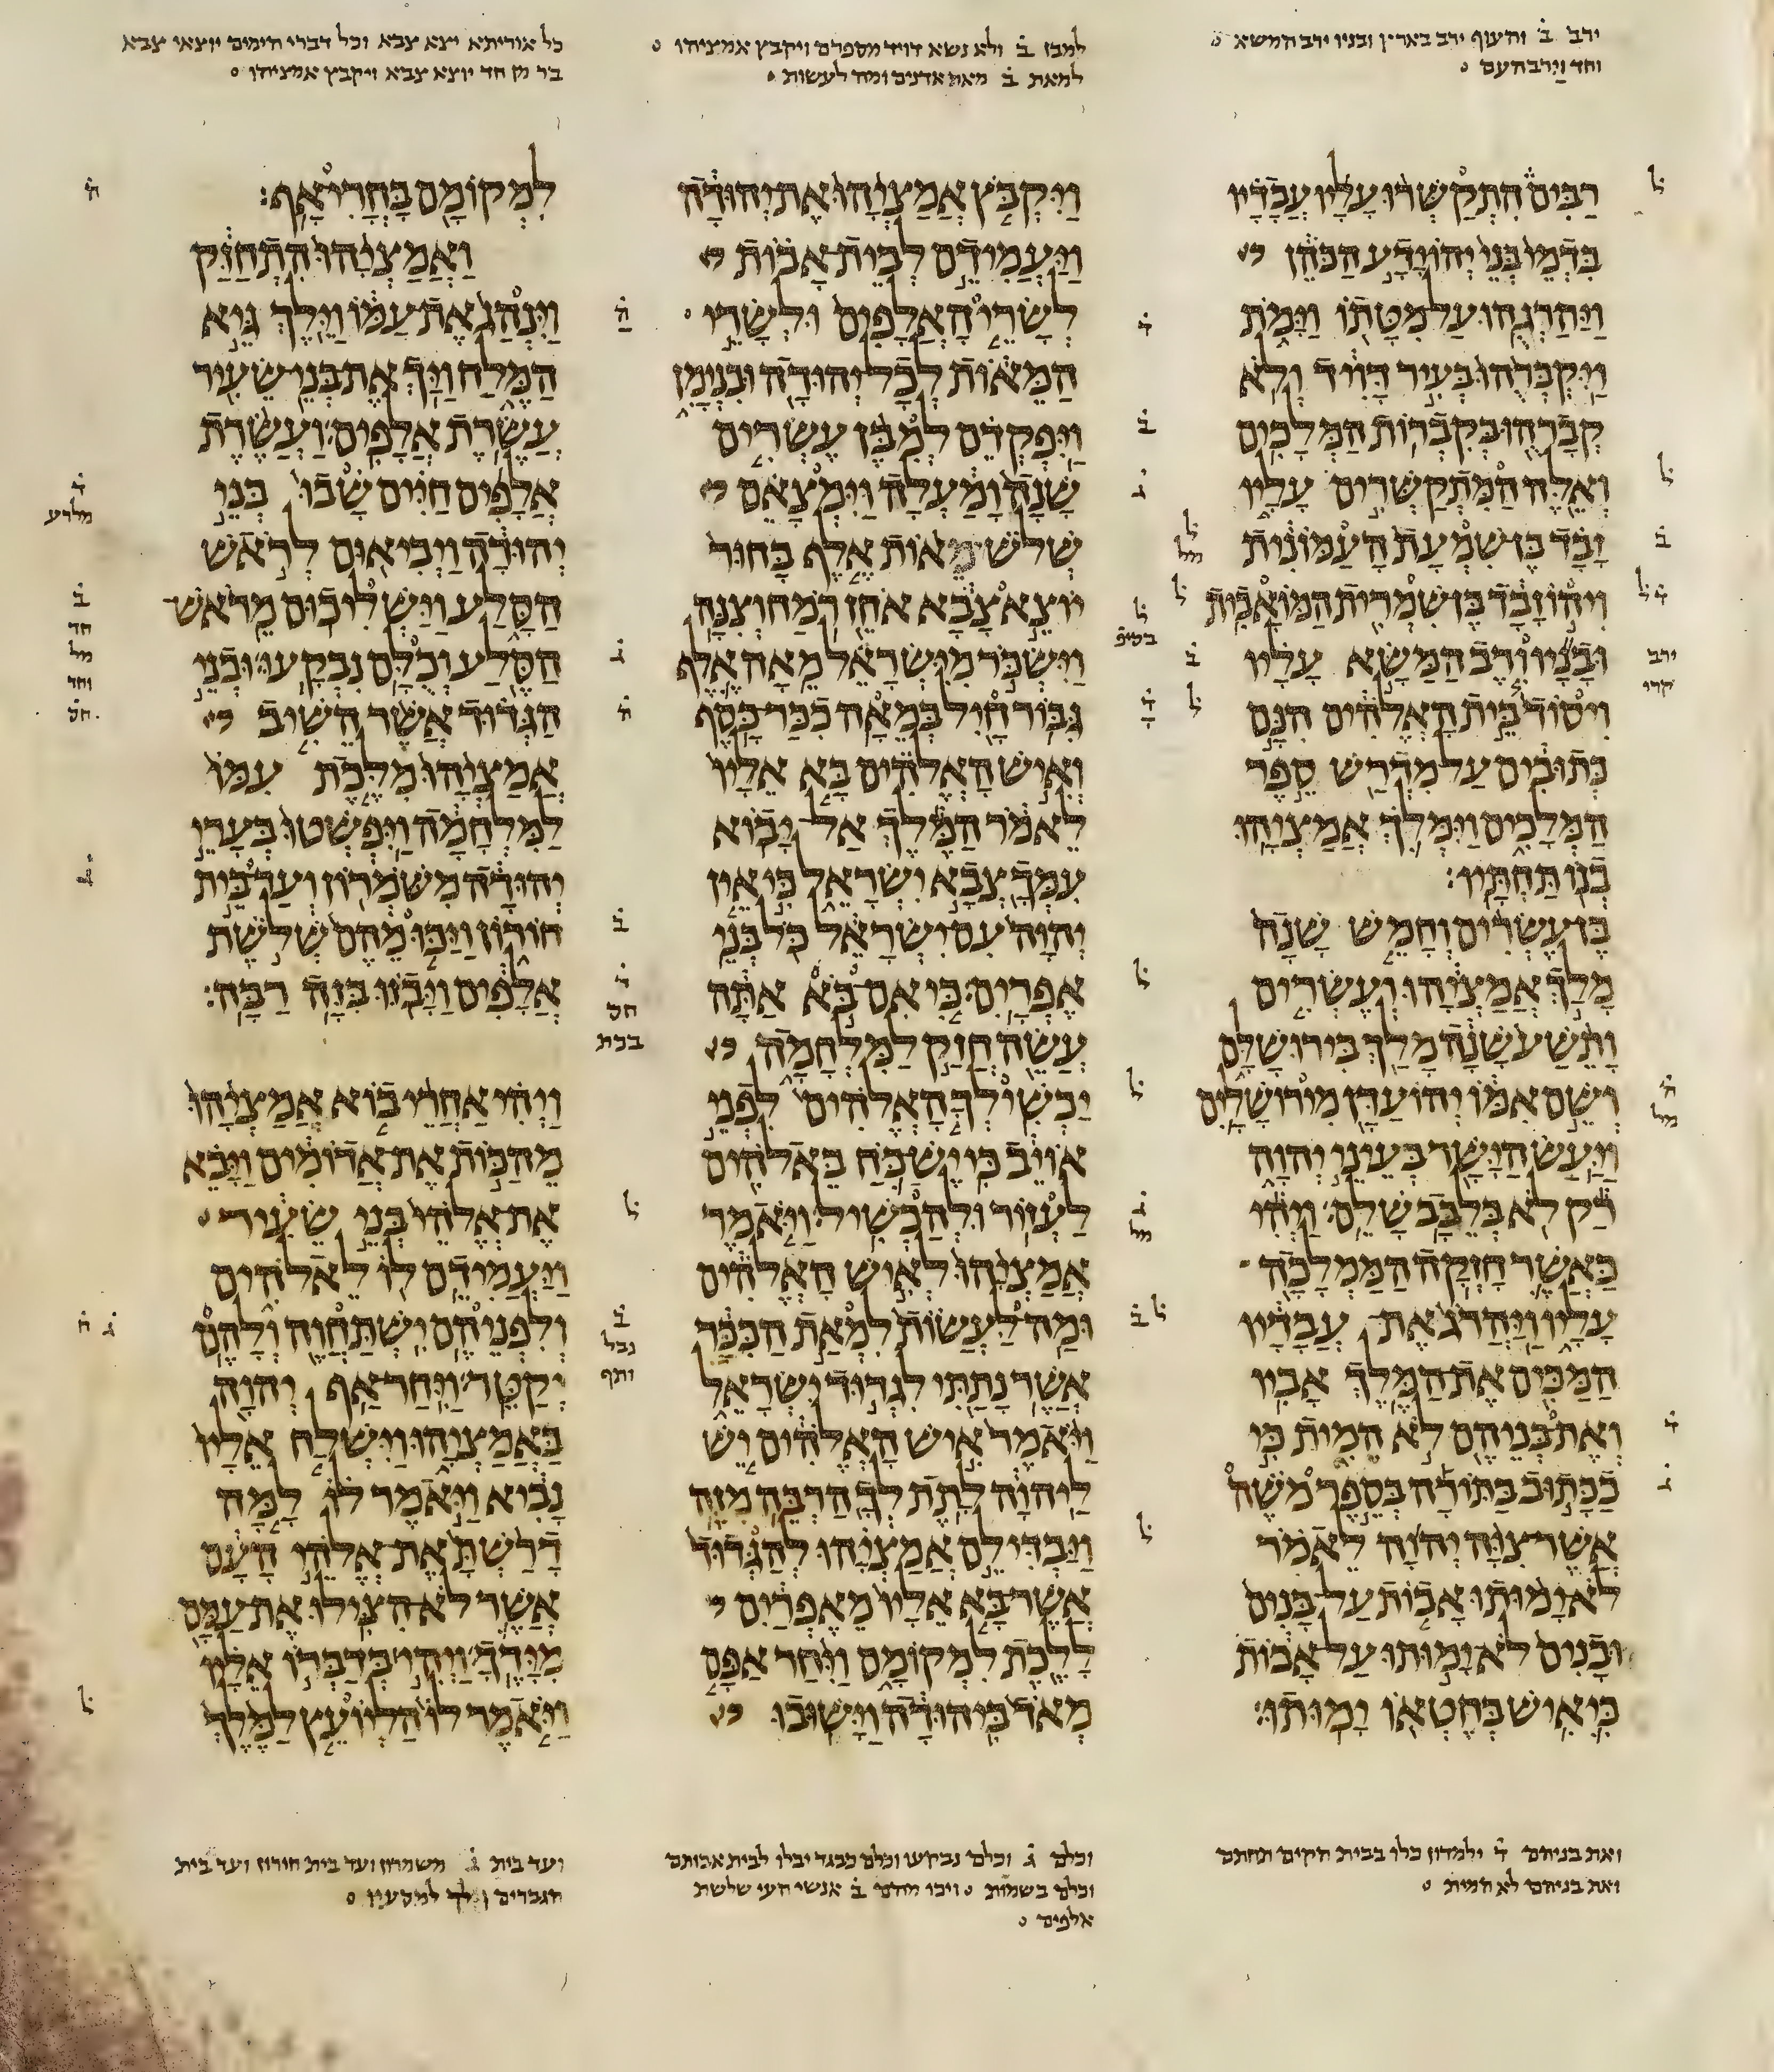 ירב ב והעוף ירב בארץ ובניו ירב המשא
וחד וירב העם
רבים התקשרו עליו עבדיו
בדמי בני יהוידע הכהן
ויהרגהו על מטתו וימת
ויקברהו בעיר דויד ולא
קברהו בקברות המלכים
ואלה המתקשרים עליו
זבד בן שמעת העמונית
ויהוזבד בן שמרית המואבית
ובניו ורב המשא עליו
ויסוד בית האלהים הנם
כתובים על מדרש ספר
המלכים וימלך אמציהו
בנו תחתיו׃
בן עשרים וחמש שנה
מלך אמציהו ועשרים
ותשע שנה מלך בירושלם
ושם אמו יהועדן מירושלים
ויעש הישר בעיני יהוה
רק לא בלבב שלם ויהי
כאשר חזקה הממלכה
עליו ויהרג את עבדיו
המכים את המלך אביו
ואת בניהם לא המית כי
ככתוב בתורה בספר משה
אשר צוה יהוה לאמר
לא ימותו אבות על בנים
ובנים לא ימותו על אבות
כי איש בחטאו ימותו׃
ואת בניהם ד ילמדון כלו בבית חקים תחתם
ואת בניהם לא המית
למבן ב ולא נשא דויד מספרם ויקבץ אמציהו
למאת ב מאת אדנים ומה לעשות
ויקבץ אמציהו את יהודה
ויעמידם לבית אבות
לשרי האלפים ולשרי
המאות לכל יהודה ובנימן
ויפקדם למבן עשרים
שנה ומעלה וימצאם
שלש מאות אלף בחור
יוצא צבא אחז רמח וצנה
וישכר מישראל מאה אלף
גבור חיל במאה ככר כסף
ואיש האלהים בא אליו
לאמר המלך אל יבוא
עמך צבא ישראל כי אין
יהוה עם ישראל כל בני
אפרים כי אם בא אתה
עשה חזק למלחמה
יכשילך האלהים לפני
אויב כי יש כח באלהים
לעזור ולהכשיל ויאמר
אמציהו לאיש האלהים
ומה לעשות למאת הככר
אשר נתתי לגדוד ישראל
ויאמר איש האלהים יש
ליהוה לתת לך הרבה מזה
ויבדילם אמציהו להגדוד
אשר בא אליו מאפרים
ללכת למקומם ויחר אפם
מאד ביהודה וישובו
וכלם ג וכלם נבקעו וכלם כבגד יבלו לבית אבותם
וכלם בשמות ויכו מהם ב אנשי העי שלשת
אלפים
כל אוריתא יצא צבא וכל דברי הימים יוצאי צבא
בר מן חד יוצא צבא ויקבץ אמציהו
למקומם בחרי אף׃
ואמציהו התחזק
וינהג את עמו וילך גיא
המלח ויך את בני שעיר
עשרת אלפים ועשרת
אלפים חיים שבו בני
יהודה ויביאום לראש
הסלע וישליכום מראש
הסלע וכלם נבקעו ובני
הגדוד אשר השיב
אמציהו מלכת עמו
למלחמה ויפשטו בערי
יהודה משמרון ועד בית
חורון ויכו מהם שלשת
אלפים ויבזו בזה רבה׃
ויהי אחרי בוא אמציהו
מהכות את אדומים ויבא
את אלהי בני שעיר
ויעמידם לו לאלהים
ולפניהם ישתחוה ולהם
יקטר ויחר אף יהוה
באמציהו וישלח אליו
נביא ויאמר לו למה
דרשת את אלהי העם
אשר לא הצילו את עמם
מידך ויהי בדברו אליו
ויאמר לו הליועץ למלך
ועד בית ג משמרון ועד בית חורון ועד בית
הגברים